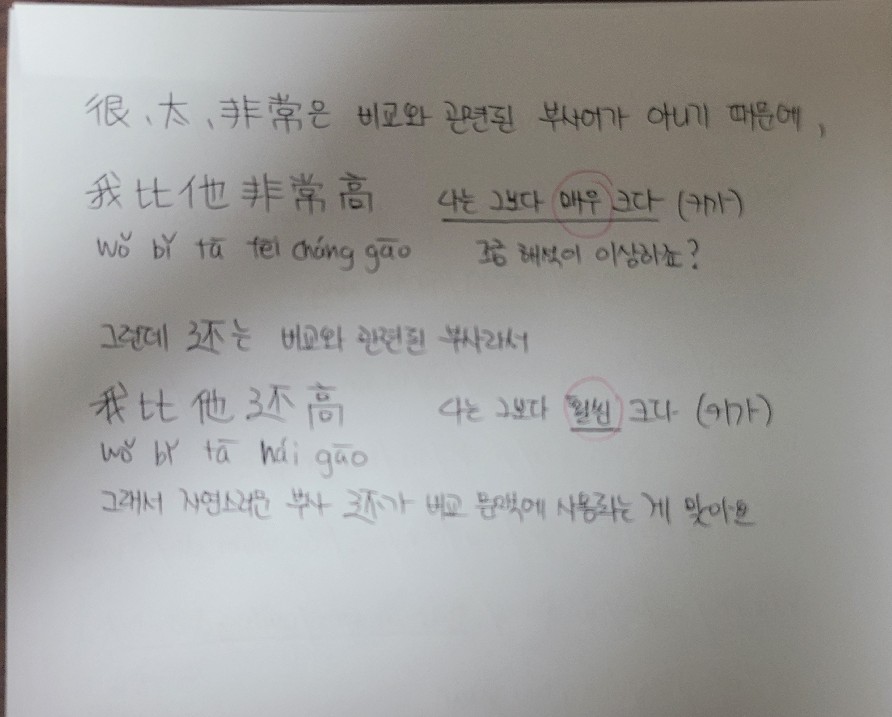 很、太、非常은 비교와 관련된 부사어가 아니기 때문에,
我比他非常高 나는 그보다 매우 크다 (키가)
wǒ bǐ tā fēi cháng gāo 조금 해석이 이상하죠?
그런데 还는 비교와 관련된 부사라서
我比他还高 나는 그보다 훨씬 크다 (키가)
wǒ bǐ tā hái gāo
그래서 자연스러운 부사 还가 비교 문맥에 사용되는 게 맞아요